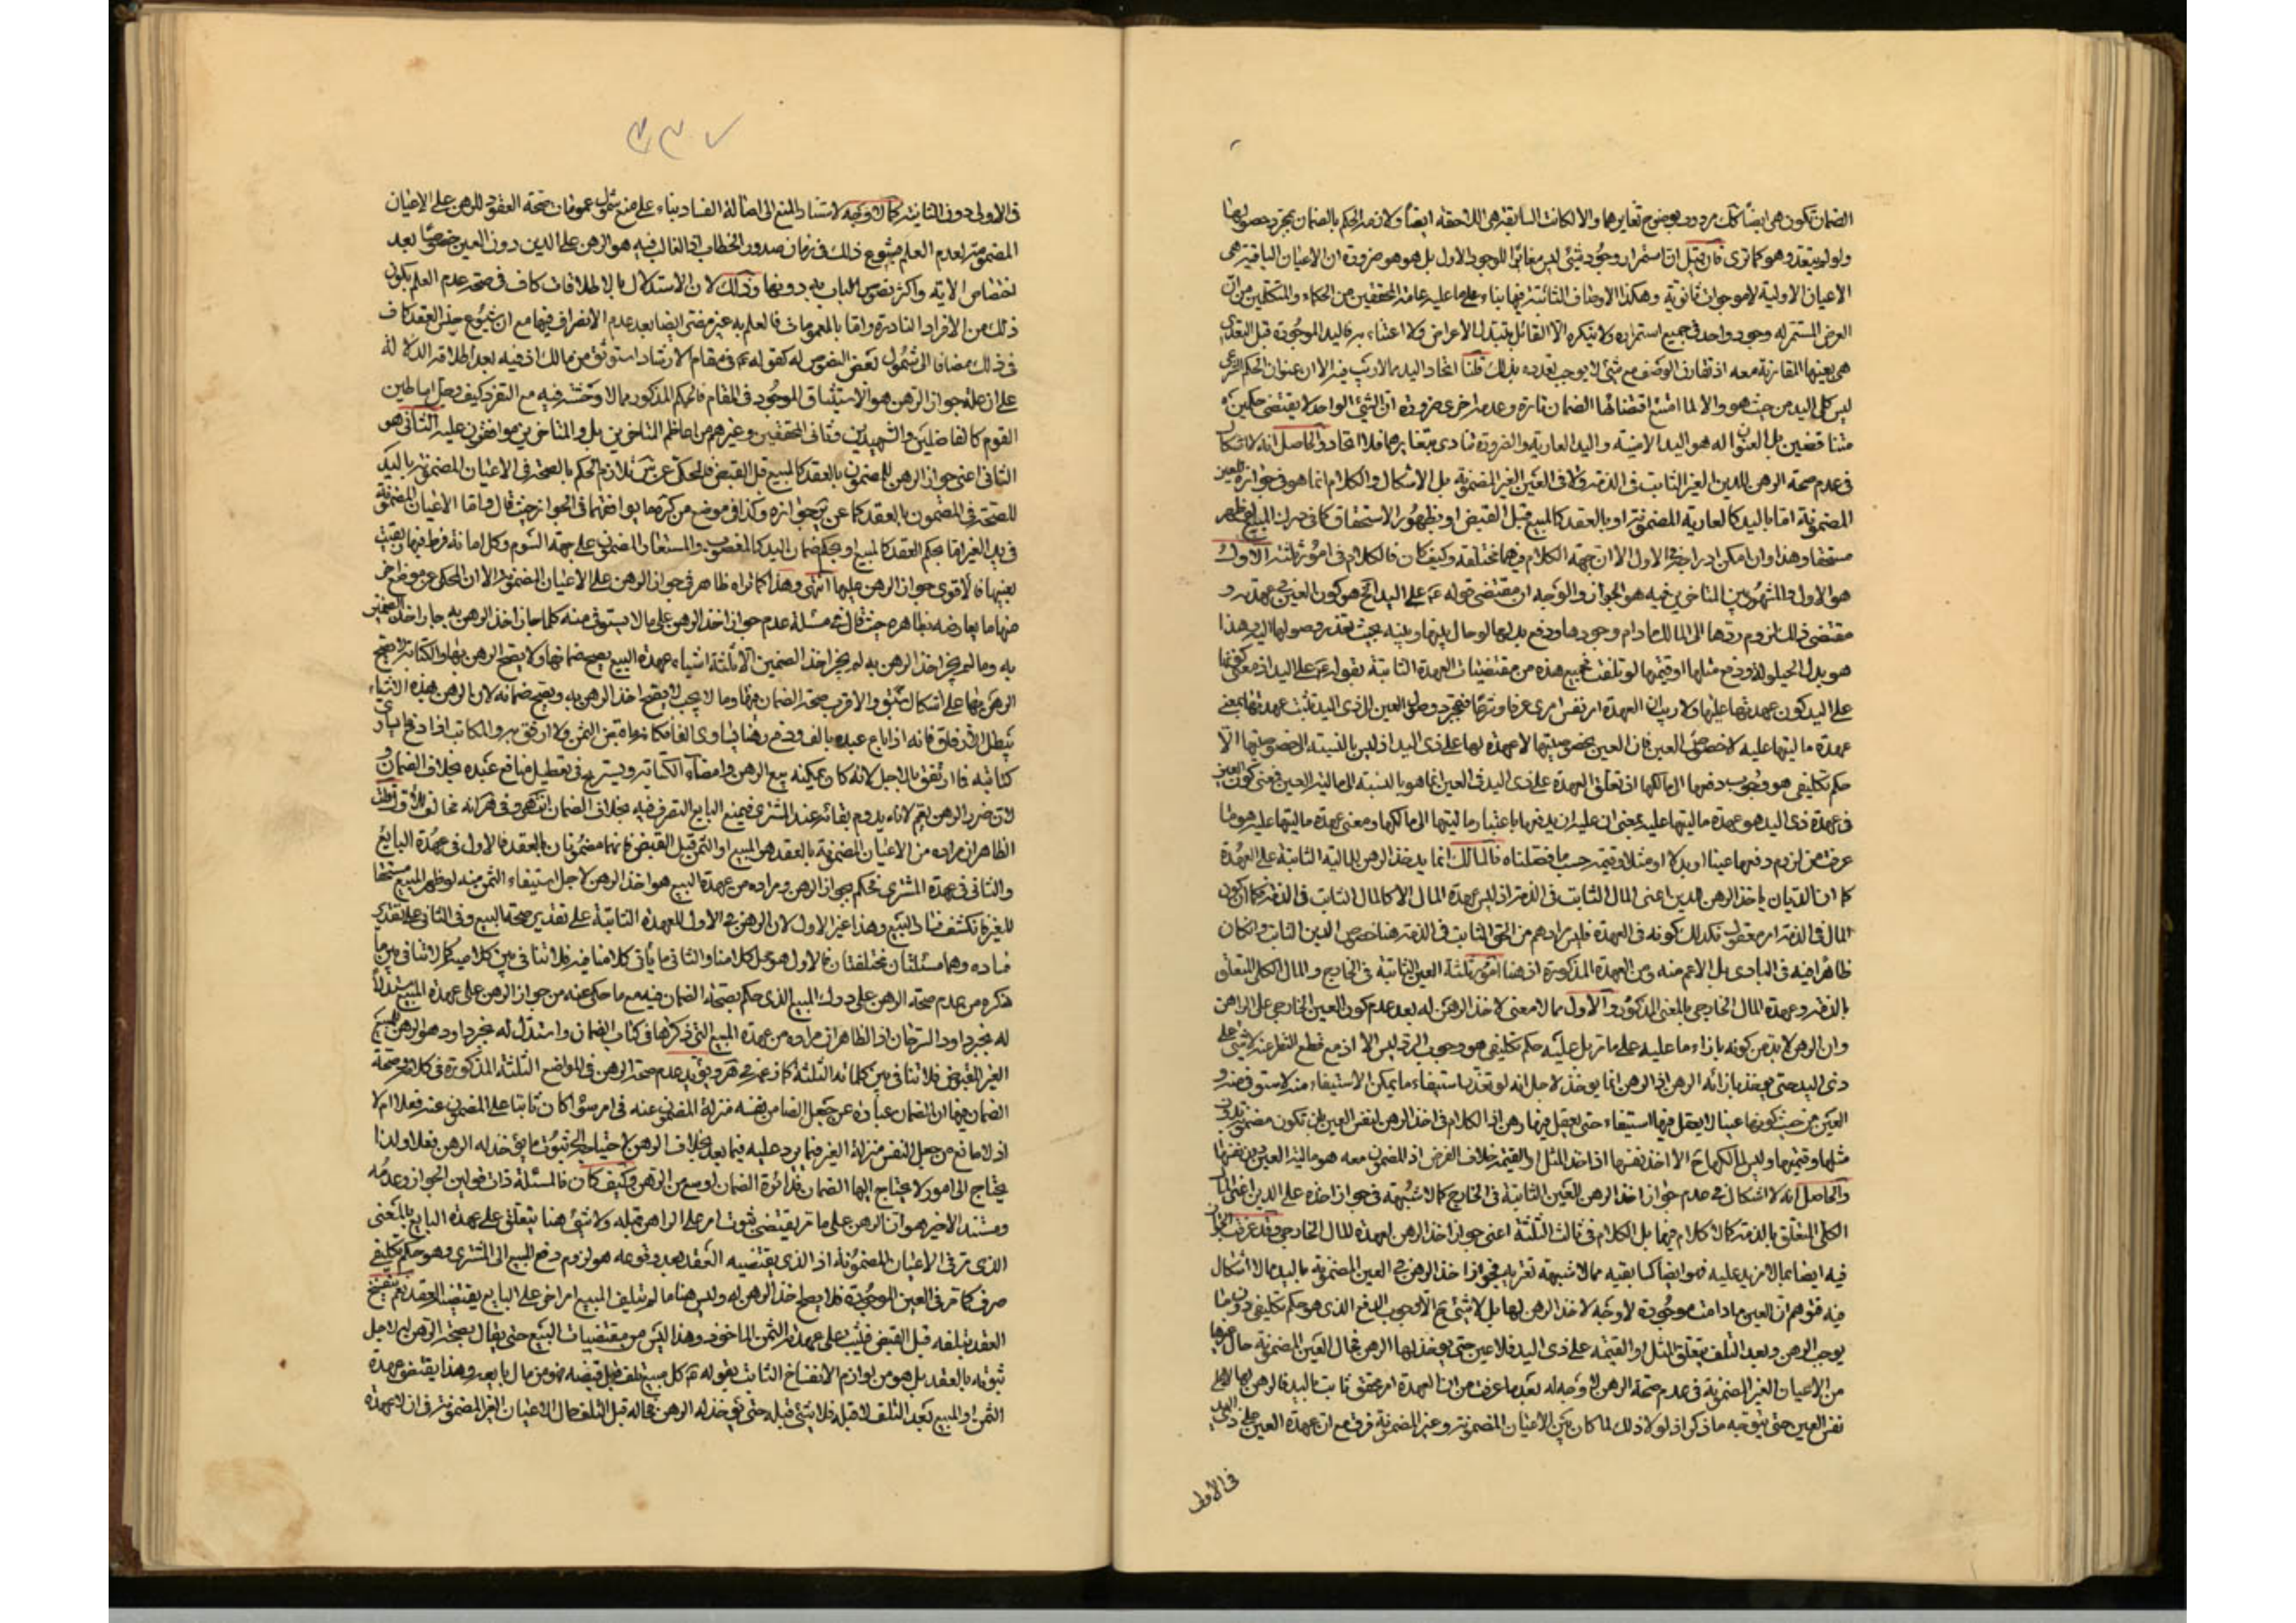 الضمان تكون هى ايضا كك مردود بوضوح تغايرهما والا لكانت السابقة هى اللاحقة ايضا ولازمه الحكم بالضمان بمجرد حصولها
ولو لم يتعد وهو كما ترى فان قيل ان استمرار وجود شئ ليس مغايرا للوجود الاول بل هو هو ضرورة ان الاعيان الباقية هى
الاعيان الاولية لا موجودات ثانوية وهكذا الاوصاف الثابتة فيها بناء على ما عليه عامة المحققين من الحكماء والمتكلمين من ان
العرض المستمر له وجود واحد فى جميع استمراره ولا ينكره الا القائل بتبدل الاعراض ولا اعتناء به فاليد الموجودة قبل التعدى
هى بعينها المقارنة معه اذ تقارن الوصف مع شئ لا يوجب تعدده بذلك قلنا اتحاد اليد مما لا ريب فيه الا ان عنوان الحكم الشرعى
ليس كلى اليد من حيث هو والا لما امتنع اقتضائها الضمان تارة وعدمه اخرى ضرورة ان الشئ الواحد لا يقتضى حكمين
متناقضين بل العنوان له هو اليد الامينة واليد العادية والضرورة تنادى بتغايرهما فلا اتحاد والحاصل انه لا اشكال
فى عدم صحة الرهن للدين الغير الثابت فى الذمة ولا فى العين الغير المضمونة بل الاشكال والكلام انما هو فى جوازه للعين
المضمونة اما باليد كالعارية المضمونة او بالعقد كالمبيع قبل القبض او بظهور الاستحقاق كما فى درك المبيع لو ظهر
مستحقا وهذا وان امكن ادراجه فى الاول الا ان جهة الكلام فيهما مختلفة وكيف كان فالكلام فى امور ثلثة الاول
هو الاول والمشهور بين المتاخرين فيه هو الجواز والوجه ان مقتضى قوله ع على اليد الخ هو كون العين فى عهدته و
مقتضى ذلك لزوم ردها الى المالك ما دام وجودها ودفع بدلها لو حال بينها وبينه بحيث تعذر وصولها اليه وهذا
هو بدل الحيلولة ودفع مثلها او قيمتها لو تلفت فجميع هذه من مقتضيات العهدة الثابتة بقوله ع على اليد اذ معنى كونها
على اليد كون عهدتها عليها ولا ريب ان العهدة امر نفس امرى عرفا وشرعا فبمجرد وصول العين الى ذى اليد تثبت عهدتها بمعنى
عهدة ماليتها عليه لا خصوص العين فان العين بخصوصيتها لا عهدة لها على ذى اليد اذ ليس بالنسبة الى خصوصيتها الا
حكم تكليفى هو وجوب دفعها الى مالكها اذ تعلق العهدة على ذى اليد فى العين انما هو بالنسبة الى مالية العين فمعنى كون العين
فى عهدة ذى اليد هو عهدة ماليتها عليه بمعنى ان عليه ان يدفعها باعتبار ماليتها الى مالكها ومعنى عهدة ماليتها عليه هو ما
عرفت من لزوم دفعها عينا او بدلا او مثلا وقيمة حسب ما فصلناه فالمالك انما ياخذ الرهن للمالية الثابتة على العهدة
كما ان الديان ياخذ الرهن للدين اعنى المال الثابت فى الذمة اذ ليس عهدة المال الا كالمال الثابت فى الذمة فكما ان كون
المال فى الذمة امر معقول فكذلك كونه فى العهدة فليس مرادهم من الحق الثابت فى الذمة هنا خصوص الدين الثابت وان كان
ظاهرا فيه فى البادى بل الاعم منه ومن العهدة المذكورة اذ هنا امور ثلثة العين الثابتة فى الخارج والمال الكلى المتعلق
بالذمة وعهدة المال الخارجى بالمعنى المذكور والاول مما لا معنى لاخذ الرهن له بعد عدم كون العين الخارجى على الراهن
وان الرهن لا بد من كونه بازاء ما عليه على ما مر بل عليه حكم تكليفى هو وجوب الرد ليس الا اذ مع قطع النظر عنه لا شئ على
ذى اليد حتى يؤخذ بازائه الرهن اذ الرهن انما يؤخذ لاجل انه لو تعذر استيفاء ما يمكن الاستيفاء منه لاستوفى منه و
العين من حيث كونها عينا لا يعقل فيها استيفاء حتى يعقل فيها رهن اذ الكلام فى اخذ الرهن لنفس العين بان تكون مضمونة بدون
مثلها وقيمتها وليس لمالكها ح الا اخذ نفسها اذ اخذ المثل او القيمة خلاف الفرض اذ المضمون معه هو مالية العين دون نفسها
والحاصل انه لا اشكال فى عدم جواز اخذ الرهن للعين الثابتة فى الخارج كما لا شبهة فى جواز اخذه على الدين اعنى المال
الكلى المتعلق بالذمة كما لا كلام فيهما بل الكلام فى ثالث الثلثة اعنى جواز اخذ الرهن لعهدة المال الخارجى وقد عرفت الجواز
فيه ايضا بما لا مزيد عليه فهو ايضا كسابقيه مما لا شبهة تعتريه فجواز اخذ الرهن فى العين المضمونة باليد مما لا اشكال
فيه فتوهم ان العين ما دامت موجودة لا وجه لاخذ الرهن لها بل لا شئ ح الا وجوب الدفع الذى هو حكم تكليفى دون ما
يوجب الرهن وبعد التلف يتعلق المثل او القيمة على ذى اليد فلا عين حتى يؤخذ لها الرهن فحال العين المضمونة حال غيرها
من الاعيان الغير المضمونة فى عدم صحة الرهن لا وجه له بعد ما عرفت من ان العهدة امر محقق ثابت باليد فالرهن لها لا على
نفس العين حتى يتوجه ما ذكر اذ لولا ذلك لما كان بين الاعيان المضمونة وغير المضمونة فرق مع ان عهدة العين على ذى اليد
فى الاولى
٢٣٠
فى الاولى دون الثانية كما لا وجه لاستناد المنع الى اصالة الفساد بناء على منع شمول عمومات صحة العقود للرهن على الاعيان
المضمونة لعدم العلم بشيوع ذلك فى زمان صدور الخطاب اذ الغالب فيه هو الرهن على الدين دون العين خصوصا بعد
اختصاص الاية واكثر نصوص الباب به دونها وذلك لان الاستدلال بالاطلاقات كاف فى صحة عدم العلم بكون
ذلك من الافراد النادرة واما بالعمومات فالعلم به غير مضر ايضا بعد عدم الانصراف فيها مع ان شيوع جنس العقد كاف
فى ذلك مضافا الى شمول بعض النصوص له كقوله ع فى مقام الارشاد استوثق من مالك اذ فيه بعد اطلاقه الدلالة
على ان علة جواز الرهن هو الاستيثاق الموجود فى المقام فالحكم المذكور مما لا وحشة فيه مع التفرد كيف وجل اساطين
القوم كالفاضلين والشهيدين وثانى المحققين وغيرهم من اعاظم المتاخرين بل والمتاخرين موافقون عليه الثانى هو
الثانى اعنى جواز الرهن للمضمون بالعقد كالمبيع قبل القبض فالمحكى عن تلازم الحكم بالصحة فى الاعيان المضمونة باليد
للصحة فى المضمون بالعقد كما عن جوازه وكذا فى موضع من كرة ما يوافقهما فى الجواز حيث قال واما الاعيان المضمونة
فى يد الغير اما بحكم العقد كالمبيع او بحكم ضمان اليد كالمغصوب والمستعار المضمون على جهة السوم وكل امانة فرط فيها وبقيت
بعينها فالاقوى جواز الرهن عليها انتهى وهذا كما تراه ظاهر فى جواز الرهن على الاعيان المضمونة الا ان المحكى عن موضع اخر
منها ما يعارضه بظاهره حيث قال فى مسئلة عدم جواز اخذ الرهن على ما لا يستوفى منه كلما جاز اخذ الرهن به جاز اخذ الضمين
به وما لم يجز اخذ الرهن به لم يجز اخذ الضمين الا ثلثة اشياء عهدة البيع يصح ضمانها ولا يصح الرهن بها والكتابة لا يصح
الرهن بها على اشكال سبق والاقرب صحة الضمان فيها وما لا يجب لا يصح اخذ الرهن به ويصح ضمانه لان الرهن بهذه الاشياء
يبطل الارفاق فانه اذا باع عبده بالف ودفع رهنا يساوى الفا فكانه ما قبض الثمن ولا ارتفق به والمكاتب اذا دفع ما يساوى
كتابته فما ارتفق بالاجل لانه كان يمكنه بيع الرهن وامضاء الكتابة ويستريح من تعطيل منافع عبده بخلاف الضمان و
لان ضرر الرهن يعم لانه يدوم بقائه عند المشترى فيمنع البايع التصرف فيه بخلاف الضمان انتهى وفى ظاهره انه مخالف للاول لكن
الظاهر ان مراده من الاعيان المضمونة بالعقد هو المبيع او الثمن قبل القبض فانهما مضمونان بالعقد فالاول فى عهدة البايع
والثانى فى عهدة المشترى فحكم بجواز الرهن ومراده من عهدة البيع هو اخذ الرهن لاجل استيفاء الثمن منه لو ظهر المبيع مستحقا
للغير فانكشف فساد البيع وهذا غير الاول لان الرهن فى الاول للعهدة الثابتة على تقدير صحة البيع وفى الثانى على تقدير
فساده وهما مسئلتان مختلفتان فالاول هو محل كلامنا والثانى ما يأتى كلامنا فيه فلا تنافى بين كلاميه كما لا تنافى بين ما
ذكره من عدم صحة الرهن على درك المبيع الذى حكم بصحة الضمان فيه مع ما حكى عنه من جواز الرهن على عهدة المبيع مستدلا
له بمجرد اود الترخان اذ الظاهر ان مراده من عهدة المبيع التى ذكرها فى كتاب الضمان واستدل له بمجرد اود هو الرهن للمبيع
الغير المقبوض فلا تنافى بين كلماته الثلثة كما زعمه فى هر ويؤيد عدم صحة الرهن فى المواضع الثلثة المذكورة فى كلامه وصحة
الضمان فيها ان الضمان عبارة عن جعل الضامن نفسه منزلة المضمون عنه فى امر سواء كان ثابتا على المضمون عنه فعلا ام لا
اذ لا مانع من جعل النفس منزلة الغير فيما يرد عليه فيما بعد بخلاف الرهن لاحتياجه الى ثبوت ما يؤخذ له الرهن فعلا ولذا
يحتاج الى امور لا يحتاج اليها الضمان فدائرة الضمان اوسع من الرهن وكيف كان فالمسئلة ذات قولين الجواز وعدمه
ومستند الاخير هو ان الرهن على ما مر يقتضى ثبوت امر على الراهن قبله ولا شئ هنا يتعلق على عهدة البايع بالمعنى
الذى مر فى الاعيان المضمونة اذ الذى يقتضيه العقد بعد وقوعه هو لزوم دفع المبيع الى المشترى وهو حكم تكليفى
صرف كما مر فى العين الموجودة فلا يصلح اخذ الرهن له وليس هنا ما لم يتلف المبيع امر اخر على البايع يقتضيه العقد نعم ينفسخ
العقد بتلفه قبل القبض فيثبت على عهدته الثمن الماخوذ وهذا ليس من مقتضيات البيع حتى يقال بصحة الرهن له لاجل
ثبوته بالعقد بل هو من لوازم الانفساخ الثابت بقوله ع كل مبيع تلف قبل قبضه فهو من مال بايعه وهذا يقتضى عهدة
الثمن او المبيع بعد التلف لا قبله فلا شئ قبله حتى يؤخذ له الرهن فحاله قبل التلف حال الاعيان الغير المضمونة فى ان لا عهدة